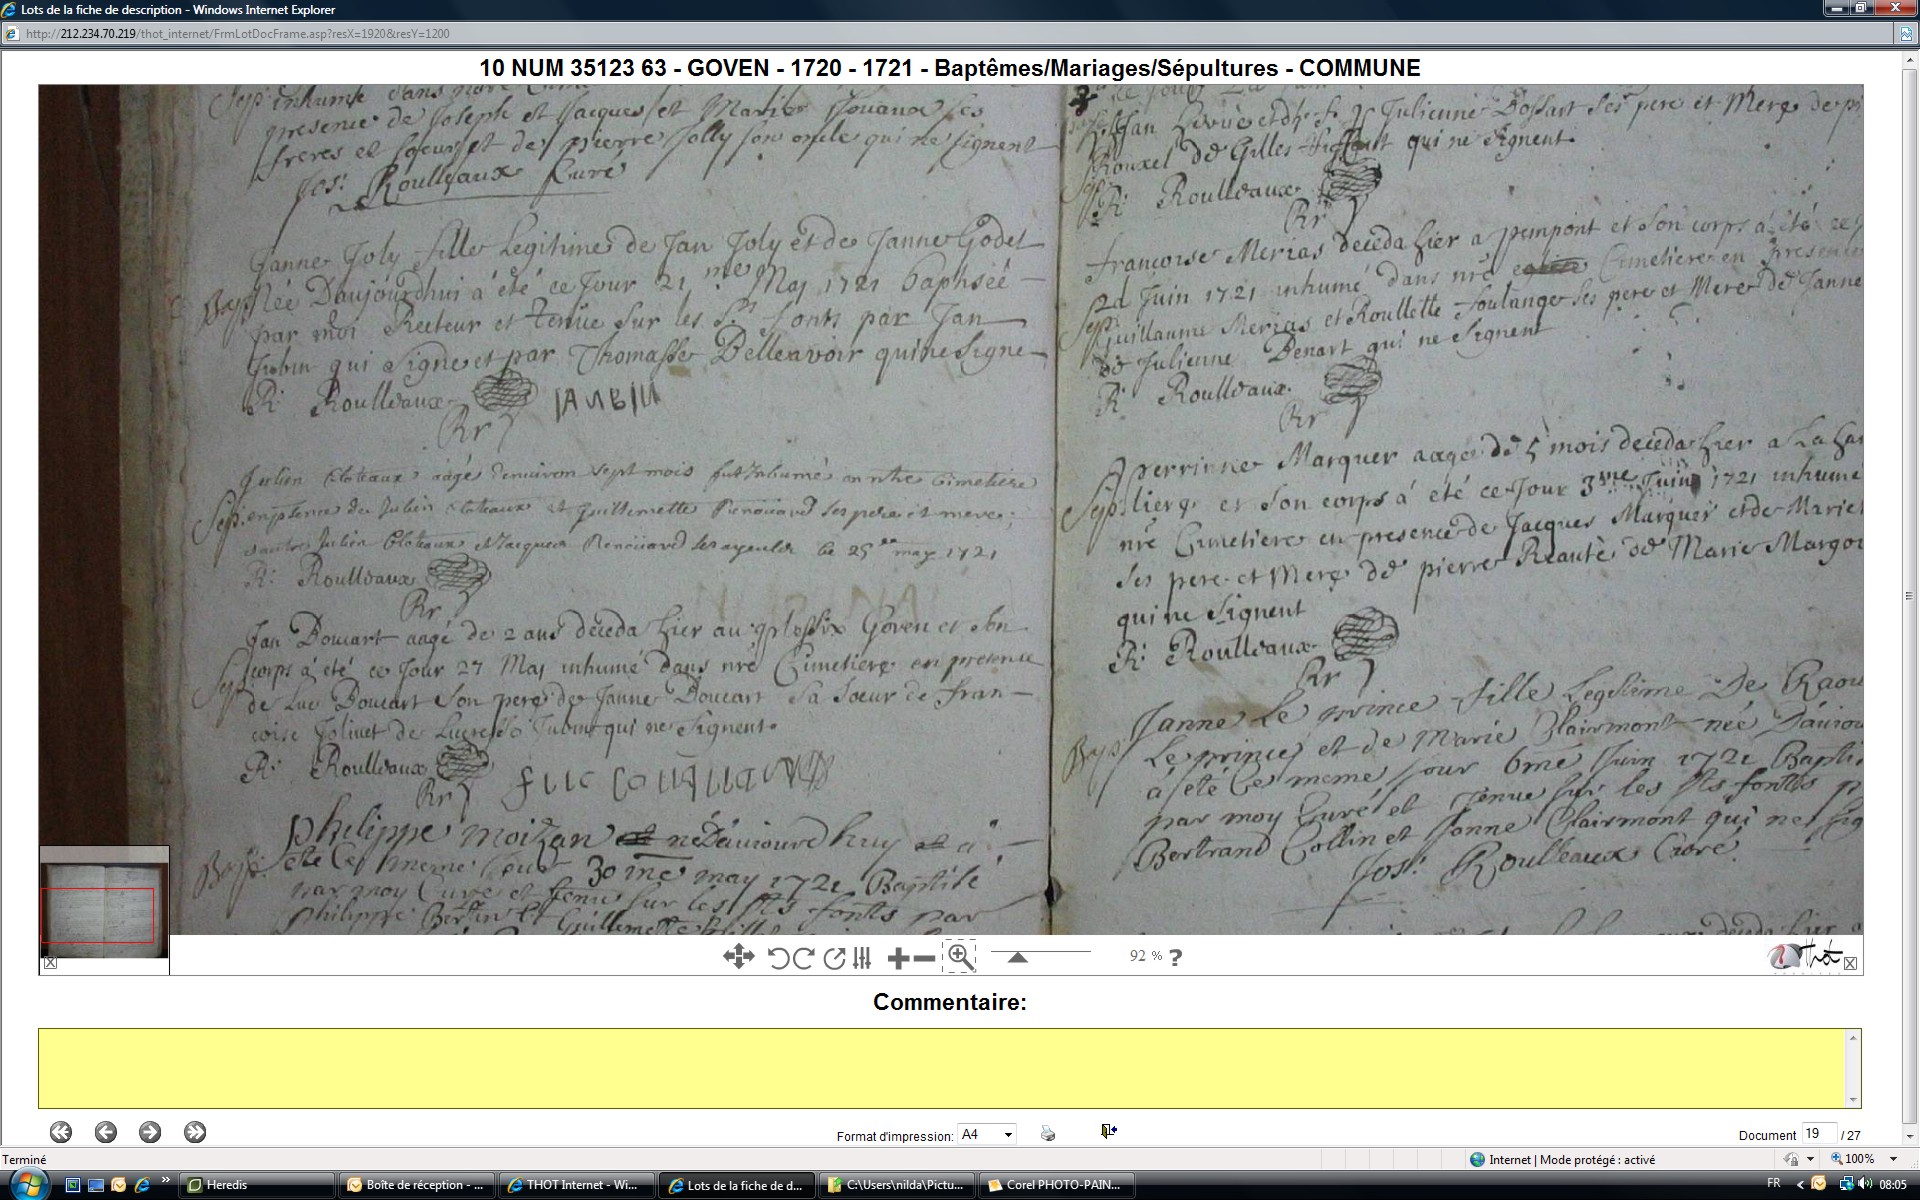 Lots de la fiche de description - Windows Internet Explorer
http://212.234.70.219/thot_internet/FrmLotDocFrame.asp?resX=1920&resY=1200
10 NUM 35123 63 - GOVEN - 1720 - 1721 - Baptêmes/Mariages/Sépultures - COMMUNE
Sep inhumé dans nore
presence de Joseph et Jacques et Marie Jouaux ses
freres et soeurs et de pierre Jolly son oncle qui ne signent
Jos: Roulleaux Curé
Janne Joly fille Legitime de Jan Joly et de Janne Godet
Bap Née Daujourdhui á été ce Jour 21 me May 1721 baptisée
par moi Recteur et tenue sur les Sts fonts par Jan
Jubin qui signe et par Thomasse Delleavoir qui ne signe
R: Roulleaux IAUBIN
Rr
Julien Clateaux aagé denuiron sept mois fut Inhumé en ntre Cimetiere
Sep: en pnsence de Julien Clateaux et Guillemette Renouard ses pere et mere;
autre Julien Clateaux et Jacques Renoüard ses ayeulx le 25 may 1721
R: Roulleaux
Rr
Jan Doucart aagé de 2 ans déceda hier au Goven et son
Sep corps á été ce Jour 27 May inhumé dans nré Cimetiere en presence
de Luc Doucart son pere de Janne Doucart sa soeur de fran
coise Jolivet de Jubin qui ne signent.
R: Roulleaux
Rr
philippe moizan né Daujourdhuy a
Bap: été Ce meme Jour 30 me may 1721 Baptisé
par moy Curé et tenu sur les sts fonts par
philippe Bertin et Guillemette
Jan et de Julienne Dossart ses pere et Mere de
Rouxel de Gilles qui ne signent.
R: Roulleaux
Rr
francoise Merias déceda hier a pempont et son corps á été ce
2d Juin 1721 inhumé dans nré Cimetiere en presence
Sep Guillaume Merias et Roullette Soulange ses pere et Mere de Janne
de Julienne Denart qui ne signent
R: Roulleaux
Rr
perrinne Marquer aagée de 5 mois déceda hier a La
Sep et son corps á été ce Jour 3me Juin 1721 inhumé
nré Cimetiere en presence de Jacques Marquer et de Marie
ses pere et Mere de pierre Reauté de Marie
qui ne signent
R: Roulleaux
Rr
Janne Le prince fille Legitime De Raou
Bap Le prince et de Marie Clairmont née Daujou
a été Ce meme jour 6me Juin 1721 Bapti
par moy Curé et tenue sur les sts fonts p
Bertrand Collin et Janne Clairmont qui ne sig
Jos: Roulleaux Curé.
92 % ?
Thot
Commentaire:
Format d'impression: A4
Document 19 / 27
Terminé
Internet | Mode protégé : activé
100%
Heredis
Boîte de réception - ...
THOT Internet - Wi...
Lots de la fiche de d...
C:\Users\nilda\Pictu...
Corel PHOTO-PAIN...
FR
08:05